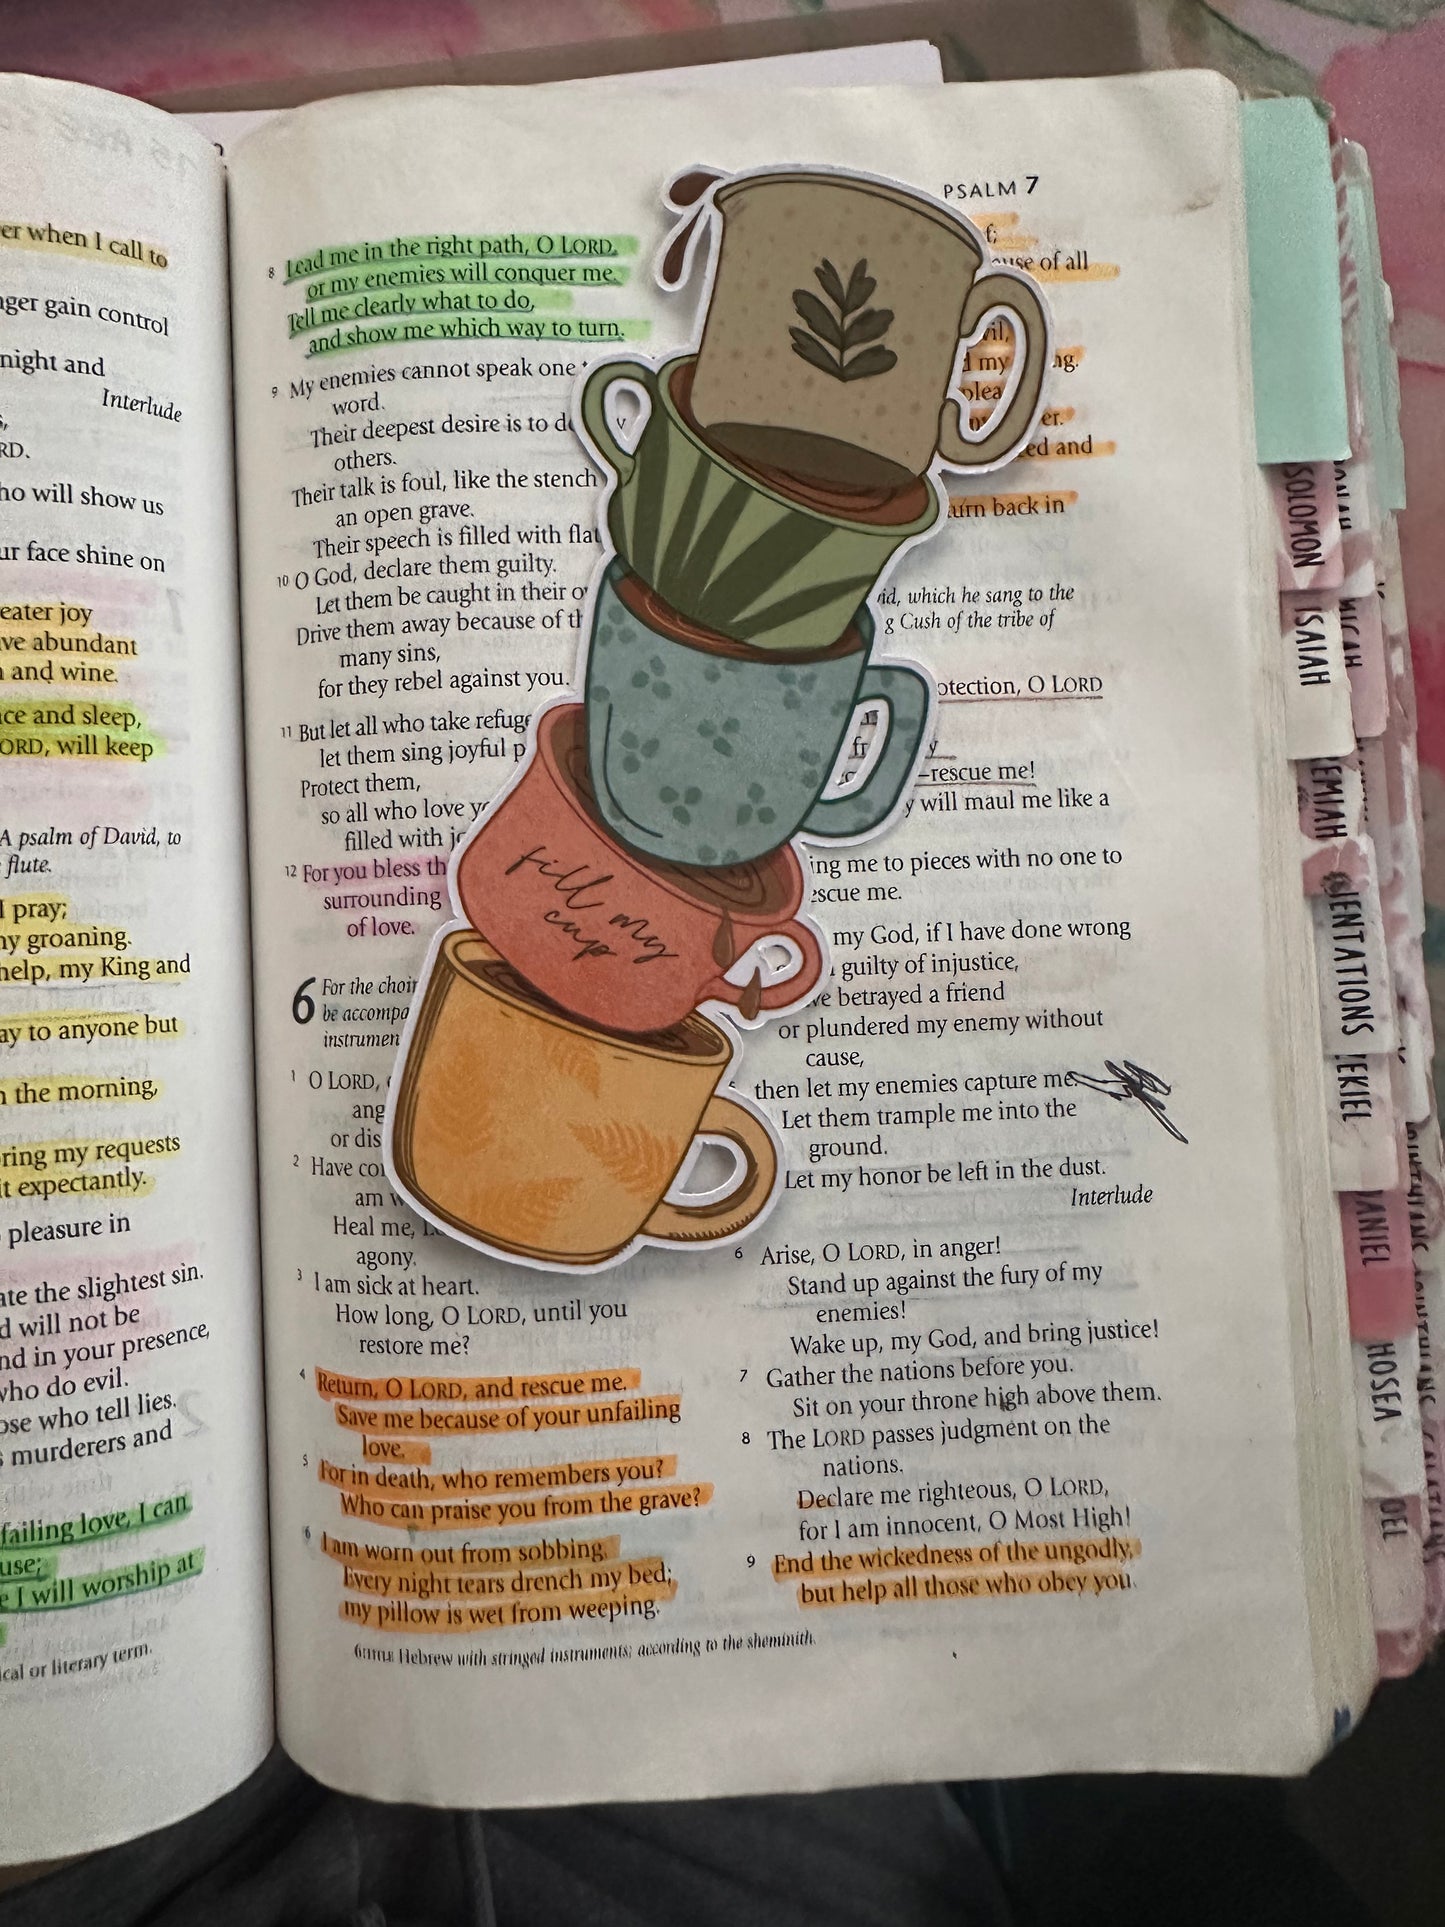 er when I call to
nger gain control
night and
Interlude
RD.
ho will show us
ur face shine on
eater joy
ve abundant
and wine.
ce and sleep,
ORD, will keep
A psalm of David, to
flute.
I pray;
ny groaning.
help, my King and
ay to anyone but
n the morning,
ring my requests
it expectantly.
pleasure in
ate the slightest sin.
d will not be
nd in your presence,
who do evil.
ose who tell lies.
murderers and
failing love, I can
use;
e I will worship at
ical or literary term.
8 Lead me in the right path, O LORD,
or my enemies will conquer me.
Tell me clearly what to do,
and show me which way to turn.
9 My enemies cannot speak one
word.
Their deepest desire is to de
others.
Their talk is foul, like the stench
an open grave.
Their speech is filled with flat
10 O God, declare them guilty.
Let them be caught in their o
Drive them away because of th
many sins,
for they rebel against you.
11 But let all who take refuge
let them sing joyful p
Protect them,
so all who love yo
filled with jo
12 For you bless th
surrounding
of love.
6 For the choir
be accompa
instrumen
1 O LORD,
ang
or dis
2 Have co
am w
Heal me,
agony.
3 I am sick at heart.
How long, O LORD, until you
restore me?
4 Return, O LORD, and rescue me.
Save me because of your unfailing
love.
5 For in death, who remembers you?
Who can praise you from the grave?
6 I am worn out from sobbing.
Every night tears drench my bed;
my pillow is wet from weeping.
6:TITLE Hebrew with stringed instruments; according to the sheminith.
fill my
cup
PSALM 7
f;
ause of all
vil,
d my ng.
plea
er.
ed and
turn back in
vid, which he sang to the
g Cush of the tribe of
otection, O LORD
fr y
—rescue me!
y will maul me like a
ing me to pieces with no one to
escue me.
my God, if I have done wrong
guilty of injustice,
ve betrayed a friend
or plundered my enemy without
cause,
then let my enemies capture me.
Let them trample me into the
ground.
Let my honor be left in the dust.
Interlude
6 Arise, O LORD, in anger!
Stand up against the fury of my
enemies!
Wake up, my God, and bring justice!
7 Gather the nations before you.
Sit on your throne high above them.
8 The LORD passes judgment on the
nations.
Declare me righteous, O LORD,
for I am innocent, O Most High!
9 End the wickedness of the ungodly,
but help all those who obey you.
SOLOMON
ISAIAH
EMIAH
ENTATIONS
EKIEL
DANIEL
HOSEA
OEL
ONAH
MICAH